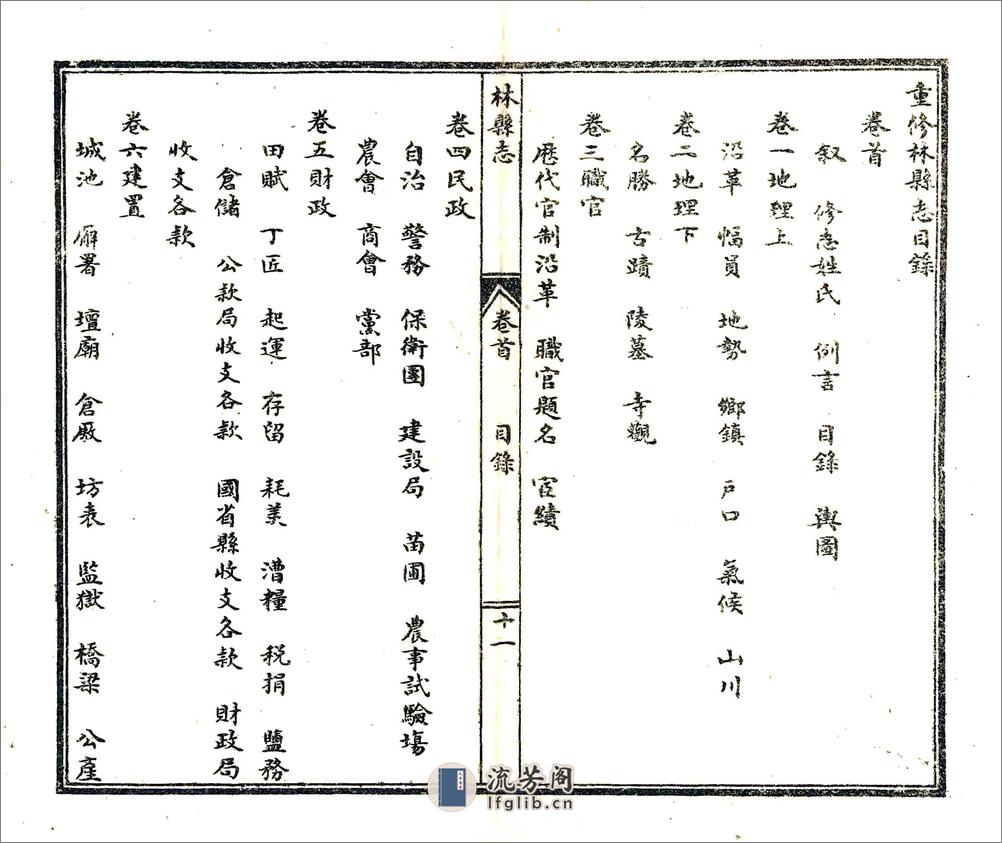 重修林縣志目錄
卷首
敘　修志姓氏　例言　目錄　輿圖
卷一地理上
沿革　幅員　地勢　鄉鎮　戶口　氣候　山川
卷二地理下
名勝　古蹟　陵墓　寺觀
卷三職官
歷代官制沿革　職官題名　宦績
林縣志　卷首　目錄　十一
卷四民政
自治　警務　保衛團　建設局　苗圃　農事試驗場
農會　商會　黨部
卷五財政
田賦　丁匠　起運　存留　耗羡　漕糧　稅捐　鹽務
倉儲　公款局收支各款　國省縣收支各款　財政局
收支各款
卷六建置
城池　廨署　壇廟　倉厫　坊表　監獄　橋梁　公產
流芳阁
lfglib.cn